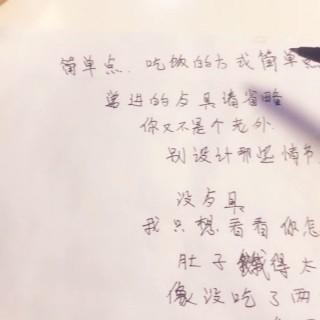 简单点.吃饭的方式简单点
营进的与具请省略
你又不是个老外.
别设计那些情节
没与具
我只想看看你怎
肚子饿得太
像没吃了两